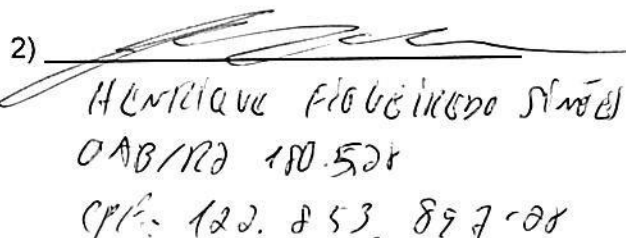 2)
HENRIQUE FIGUEIREDO SIMÕES
OAB/RJ 180.528
CPF: 122.853.897-28